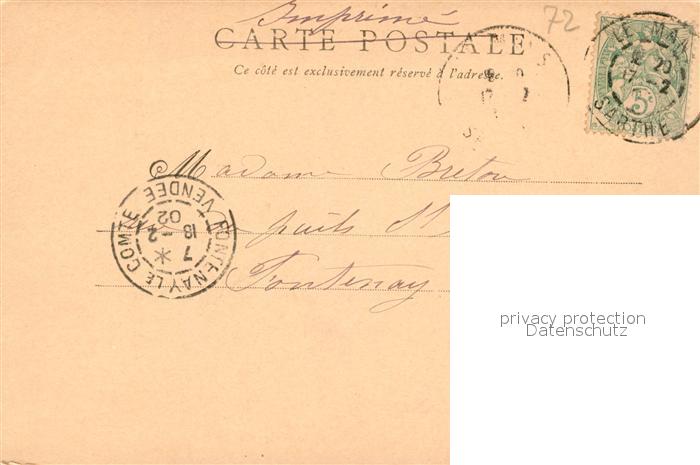 Imprimé
72
CARTE POSTALE
Ce côté est exclusivement réservé à l'adresse.
LE MANS
20
17 -2
SARTHE
5c
Madame Breton
puits St
Fontenay
FONTENAY LE COMTE
VENDÉE
7
18 -2
02
privacy protection
Datenschutz